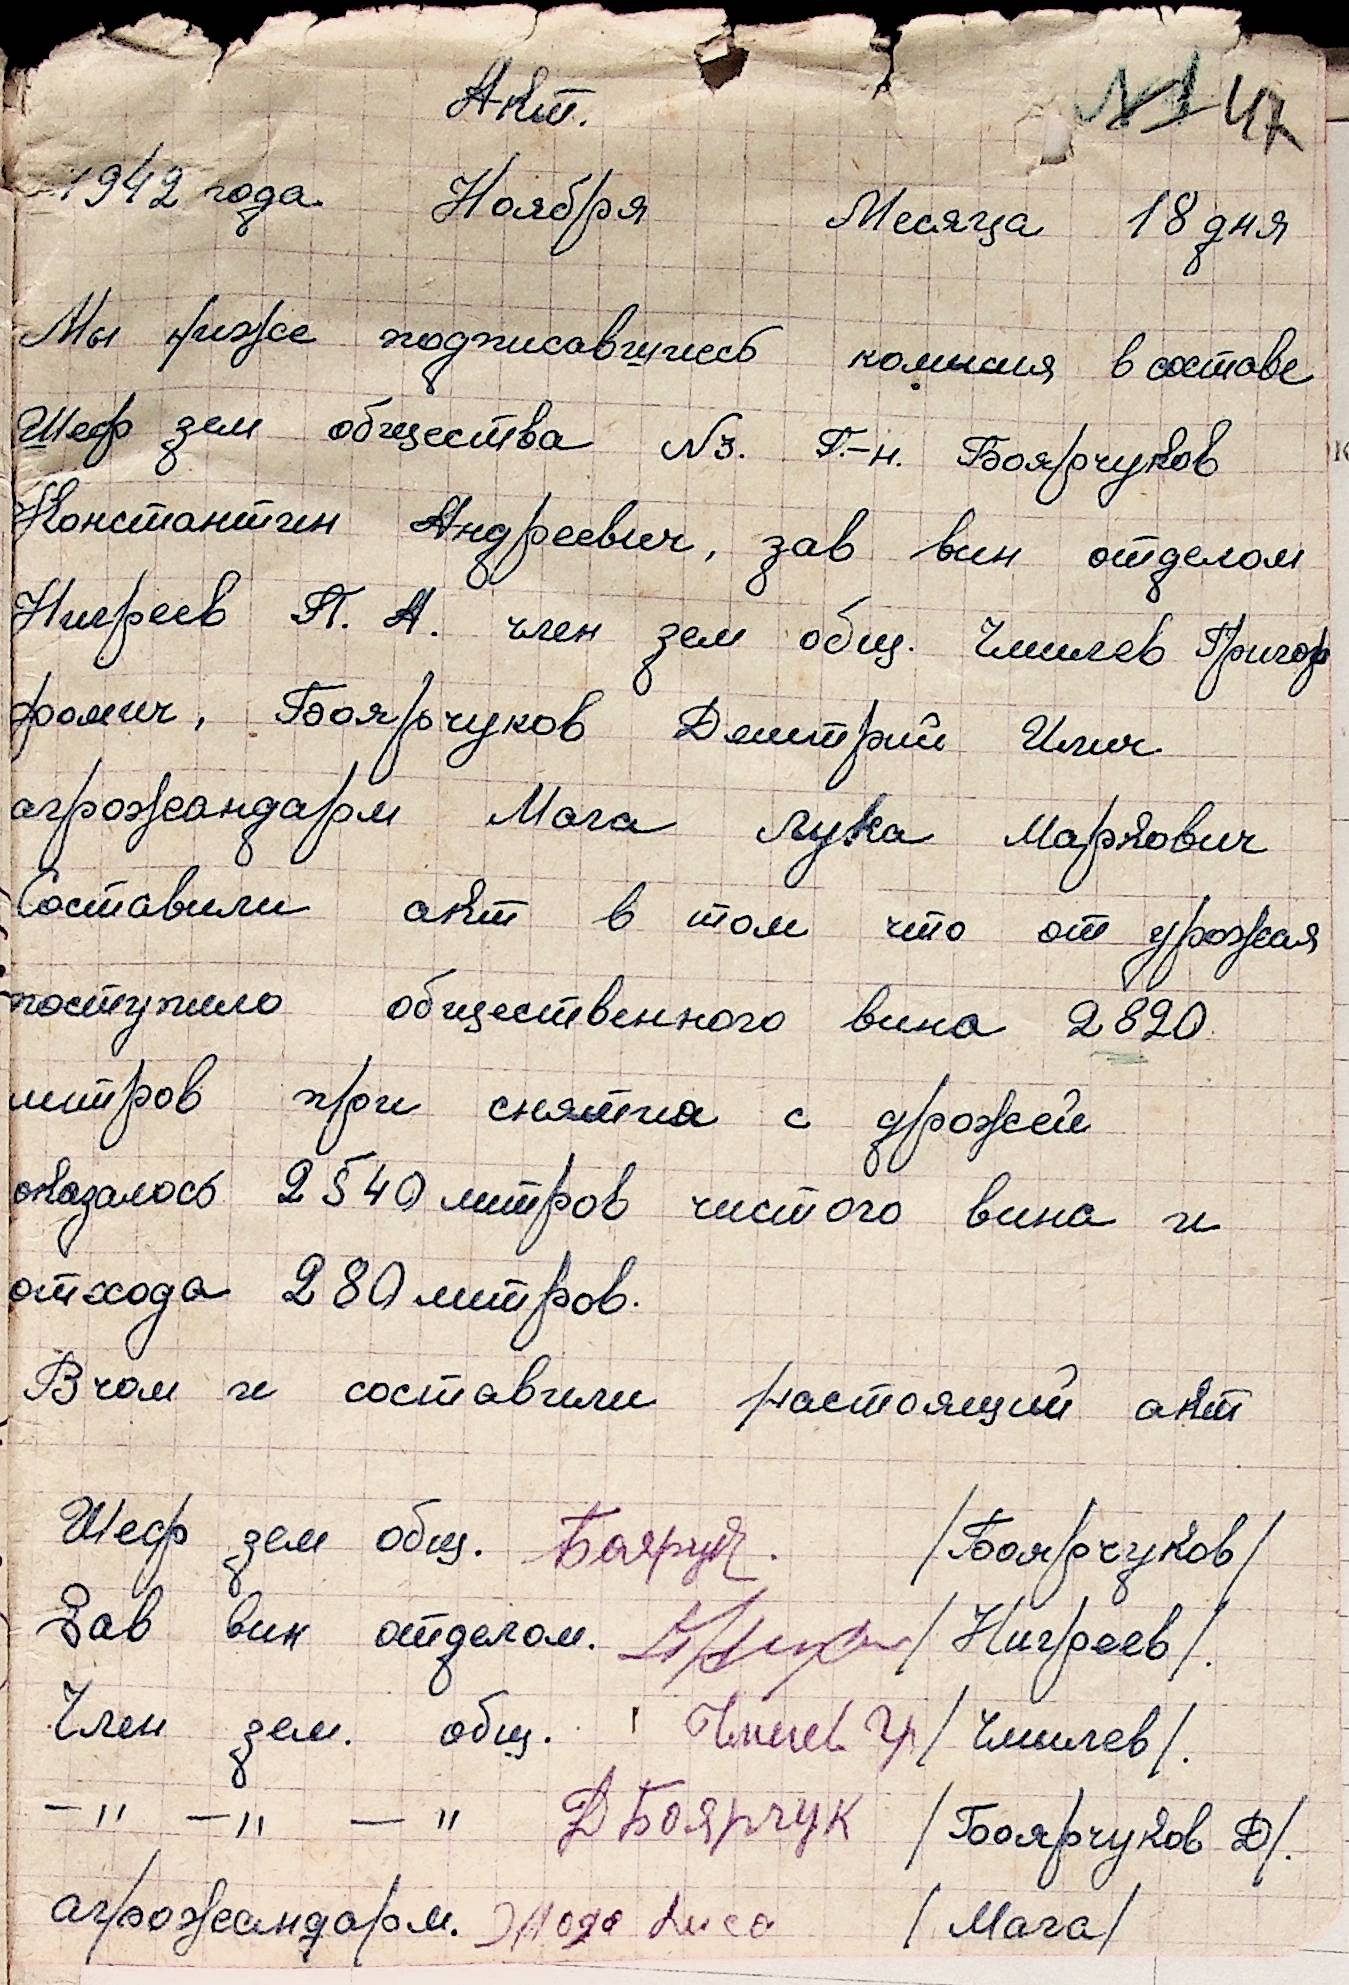 Акт.
№1 47
1942 года. Ноября Месяца 18 дня
Мы ниже подписавшиесь комисия в составе
Шеф зем общества №3. Г.-н. Боярчуков
Константин Андреевич, зав вин отделом
Нигреев П. А. член зем общ. Чмилев Григор
фомич, Боярчуков Дмитрий Илич
агрожандарм Мага Лука Маркович
Составили акт в том что от урожая
поступило общественного вина 2820
литров при снятиа с дрожей
оказалось 2540 литров чистого вина и
отхода 280 литров.
В чом и составили настоящий акт
Шеф зем общ. Боярчук. /Боярчуков/
Зав вин отделом. /Нигреев/.
Член зем. общ. Чмилев Гр /Чмилев/.
—〃 —〃 —〃 Д Боярчук /Боярчуков Д/.
агрожандарм. /Мага/